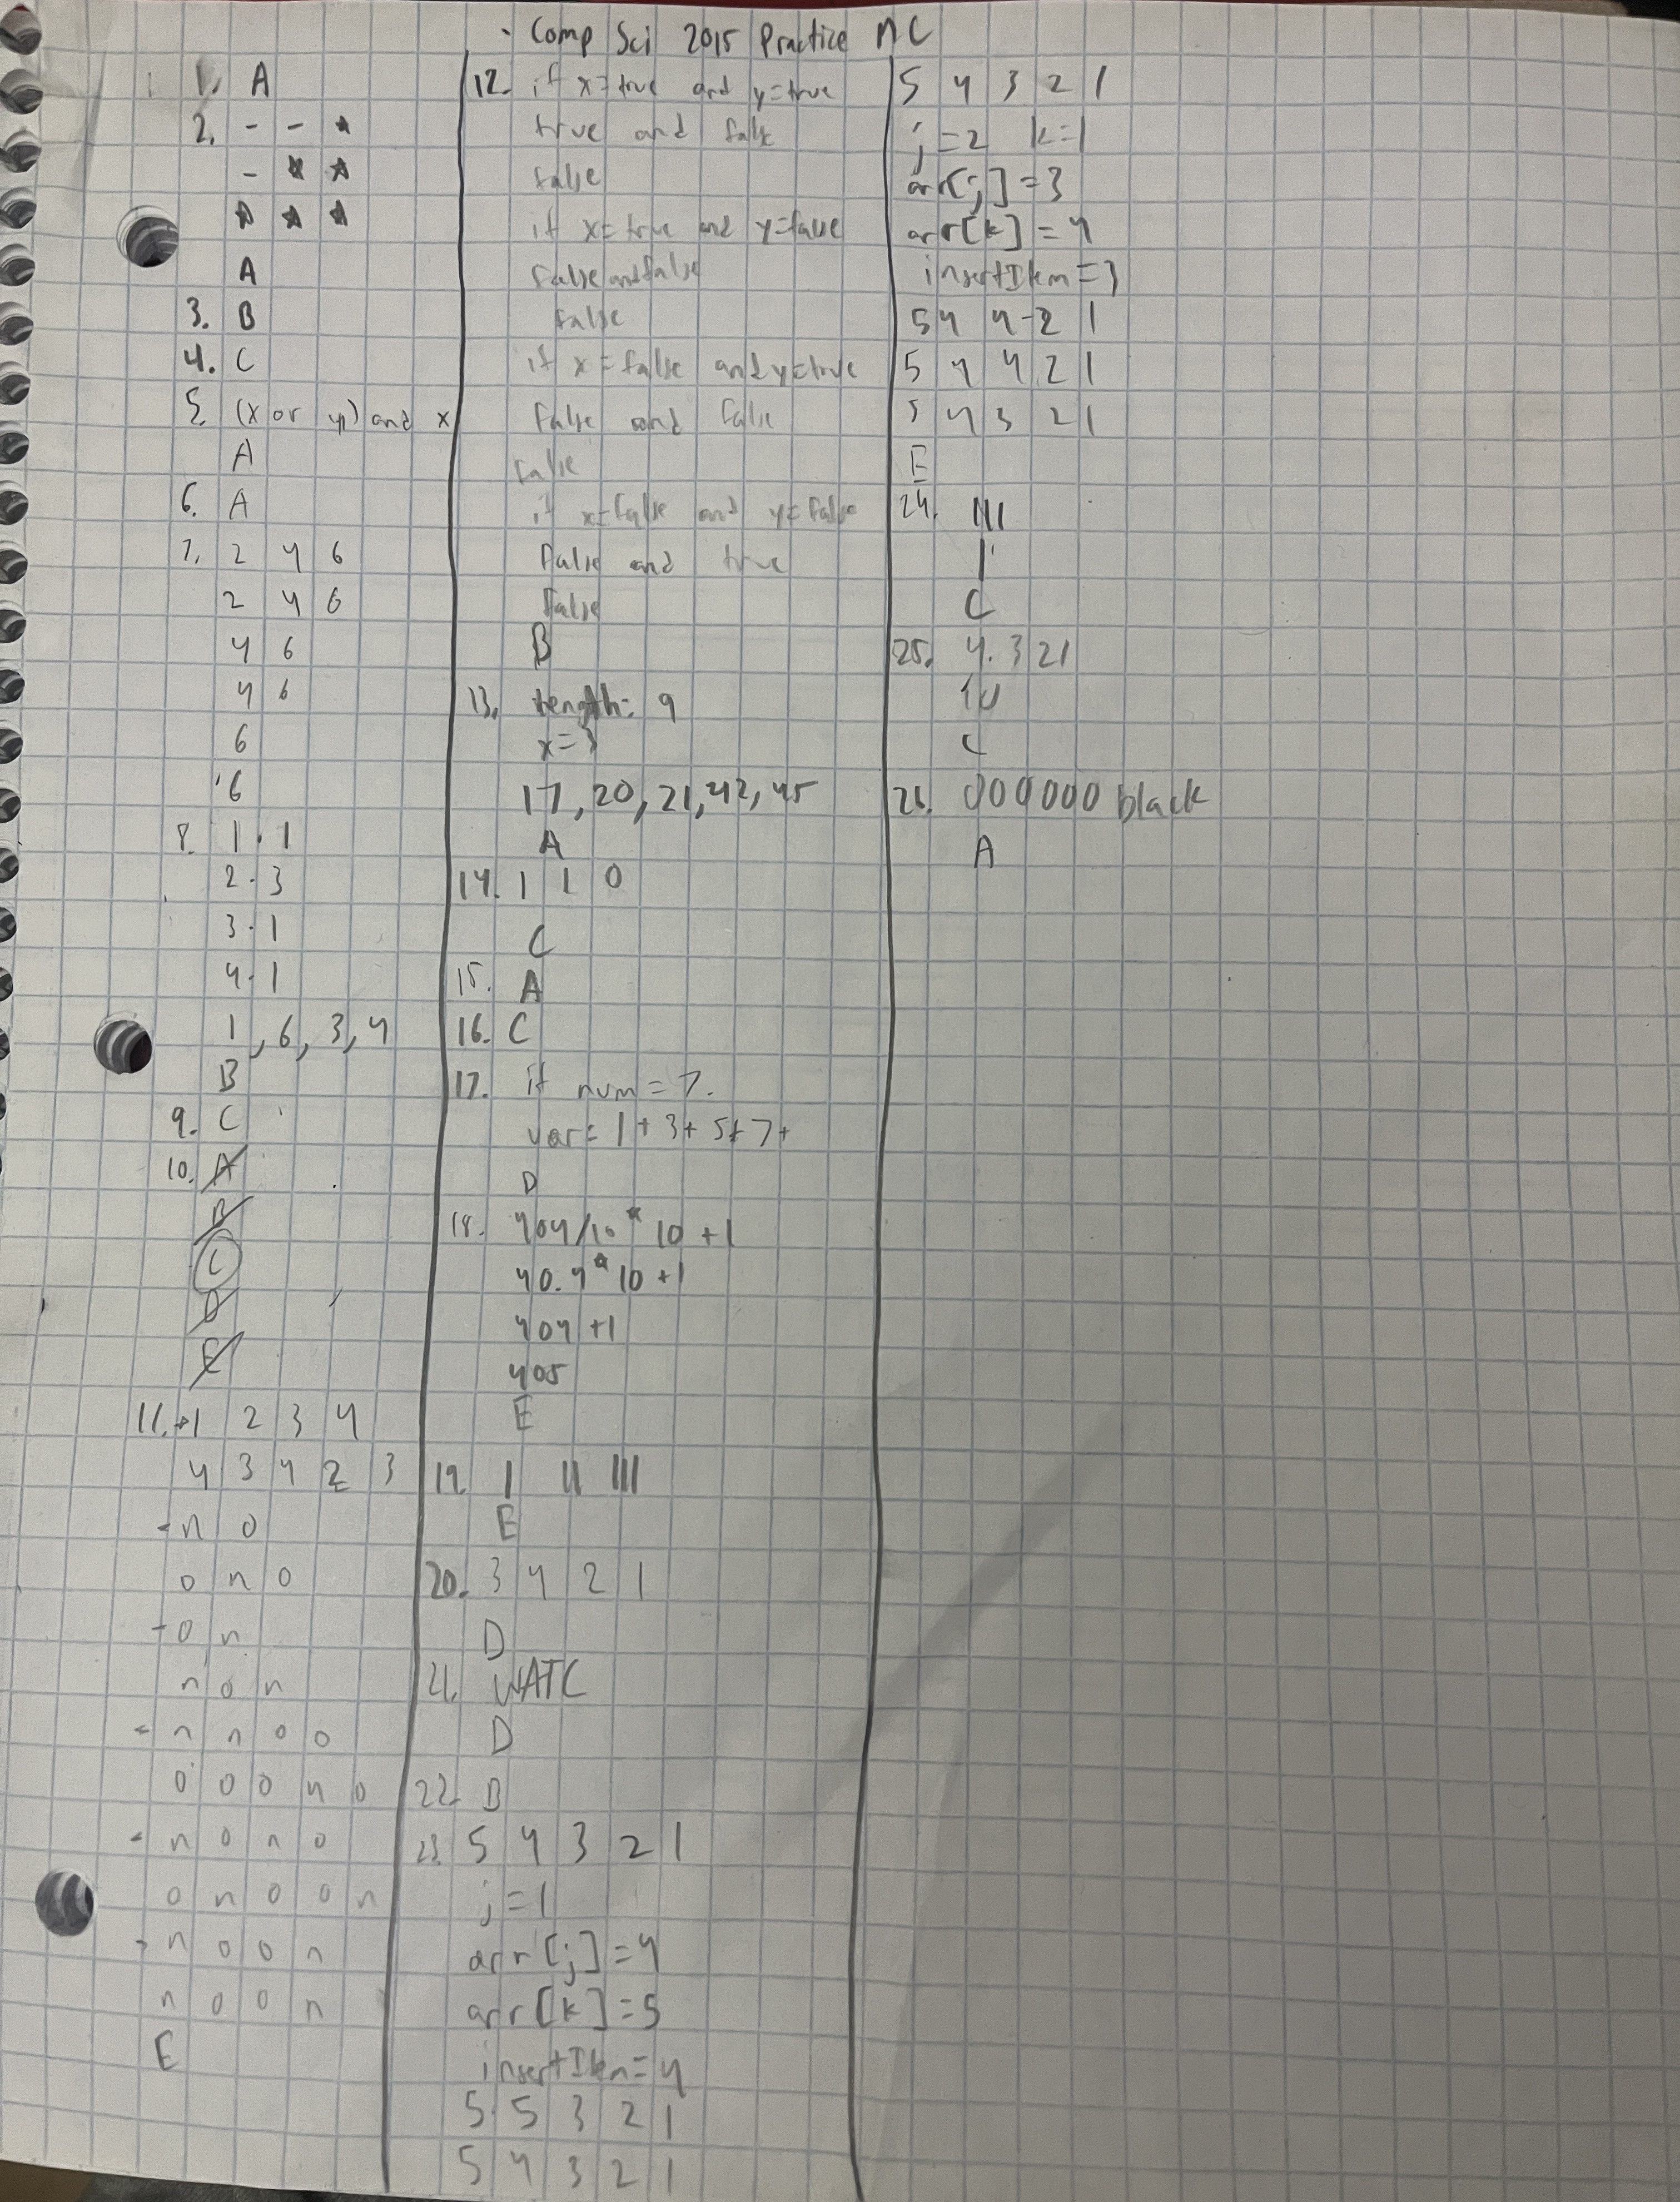 Comp Sci 2015 Practice MC
1. A
2. - - *
- * *
* * *
A
3. B
4. C
5. (x or y) and x
A
6. A
7. 2 4 6
2 4 6
4 6
4 6
6
6
8. 1 . 1
2 . 3
3 . 1
4 . 1
1, 6, 3, 4
B
9. C
10. A
B
C
D
E
11. 1 2 3 4
4 3 4 2 3
- n o
o n o
- o n
n o n
- n n o o
o o o n o
- n o n o
o n o o n
- n o o n
n o o n
E
12. if x=true and y=true
true and false
false
if x=true and y=false
false and false
false
if x=false and y=true
false and false
false
if x=false and y=false
false and true
false
B
13. length: 9
x=3
17, 20, 21, 42, 45
A
14. 1 1 0
C
15. A
16. C
17. if num = 7.
var= 1+3+5+7+
D
18. 404/10 * 10 +1
40.4 * 10 +1
404 +1
405
E
19. I II III
E
20. 3 4 2 1
D
21. WATC
D
22. B
23. 5 4 3 2 1
j=1
arr[j]=4
arr[k]=5
insertItem=4
5 5 3 2 1
5 4 3 2 1
5 4 3 2 1
j=2 k=1
arr[j]=3
arr[k]=4
insertItem=3
5 4 4 2 1
5 4 4 2 1
5 4 3 2 1
E
24. III
I
C
25. 4. 3 2 1
10
C
26. 000000 black
A